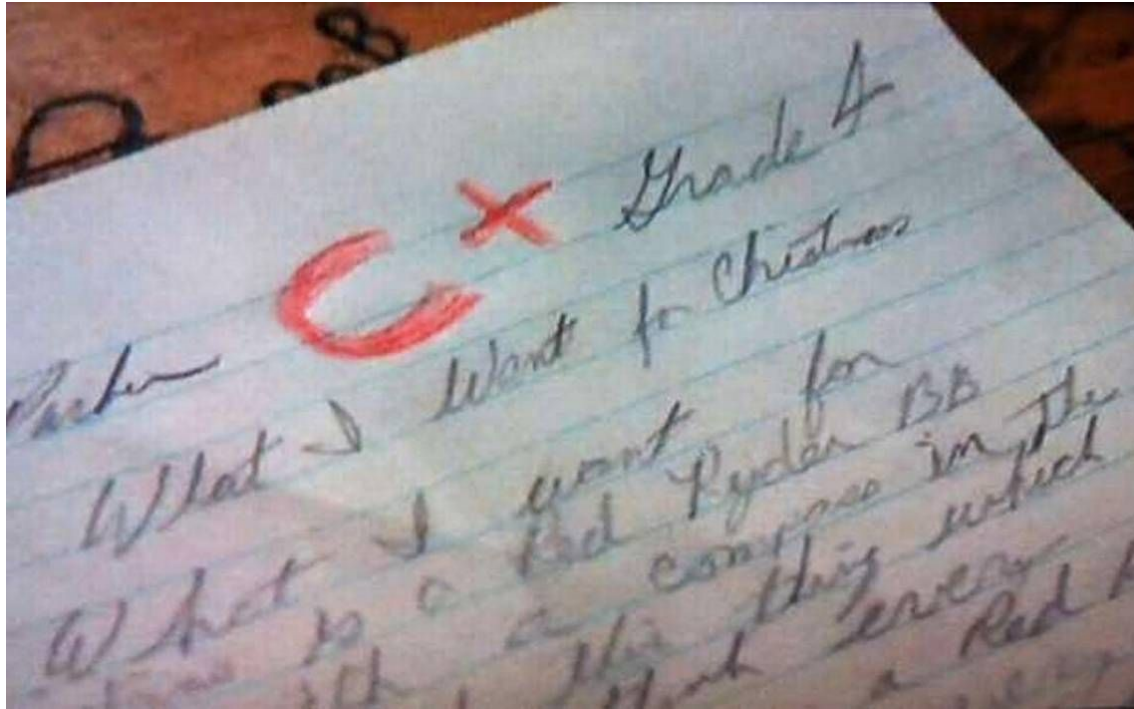 C+
Grade 4
Parker
What I Want for Christmas
What I want for
is a Red Ryder BB
a compass in the
this thing which
a Red